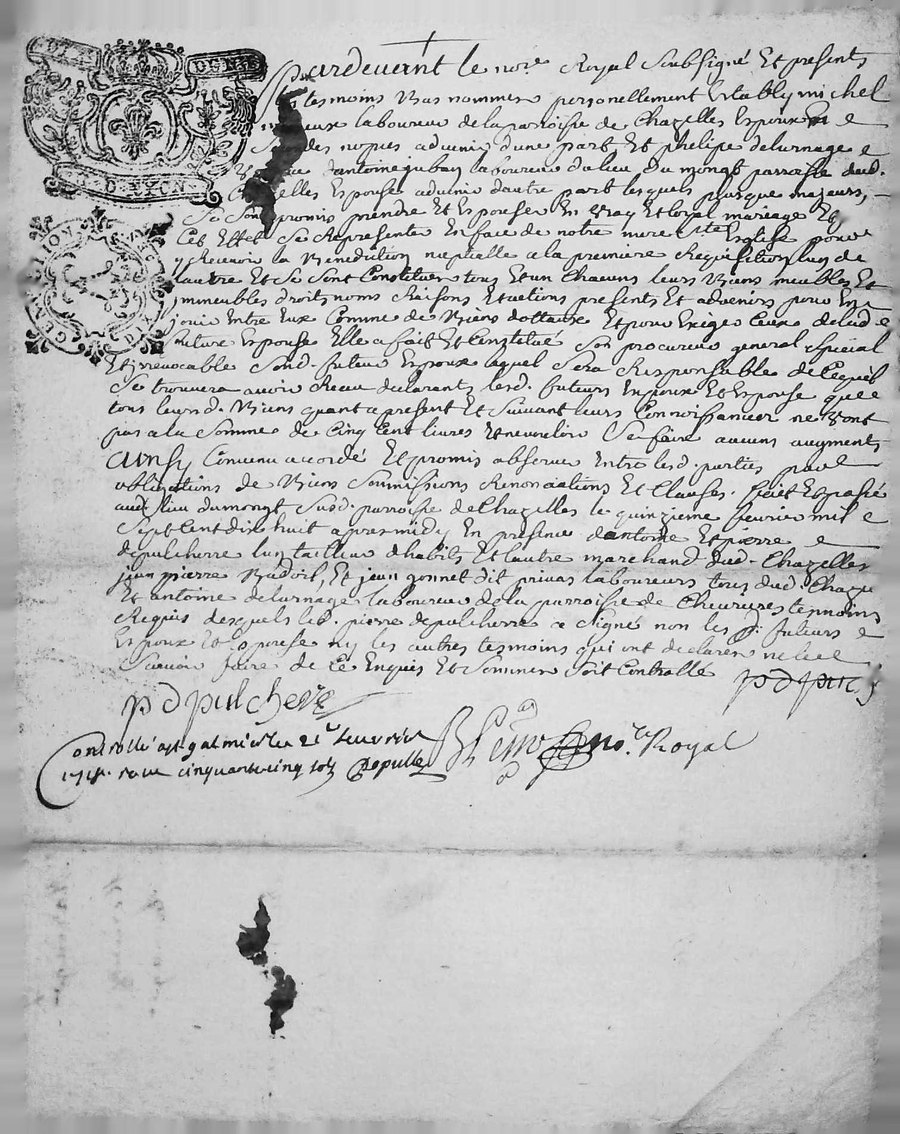 DIX DENIERS
G. D. LYON
GENERATION DIX
pardevant le no.re Royal Soubsigné Et presents
les tesmoins bas nommes personellement Estably michel
laboureur de la parroisse de Chazelles Espoux
des nopces advenir dune part Et phelipe delurnage
dantoine jaban laboureur du lieu du mongt parroisse dud.
Chazelles Espouse advenir dautre part lesquels puisque majeurs,
Se Sont promis prendre Et Espouser En vray Et loyal mariage Et
Cet Effet Se Representer En face de notre mere Ste Eglise pour
y Recevoir la Benediction nuptialle a la premiere Requisition lun de
lautre Et Se Sont Constitues tous Et un Chacuns leurs Biens meubles Et
immeubles droits noms Raisons Et actions presents Et advenirs pour En
jouir Entre Eux Comme de Biens dottaux Et pour Exiger Ceux de lad.
future Espouse Elle a fait Et Constitue Son procureur general Special
Et irrevocable Sond. futur Espoux lequel Sera Responsable de Ce quil
Se trouvera avoir Receu declarants lesd. futurs Espoux Et Espouse que
tous leursd. Biens quant a present Et Suivant leurs Connoissances ne vont
pas a la Somme de Cinq Cent livres Et ne vouloir Se faire aucuns augments
ainsy Convenu acordé Et promis observer Entre lesd. parties par
obligations de Biens Soumissions Renonciations Et Clauses. fait Et passé
aud. lieu du mongt Susd. parroisse de Chazelles le quinzieme fevrier mil
Sept Cent dix huit apres midy En presence dantoine Et pierre
depulcherre lun tailleur dhabits Et lautre marchand dud. Chazelles
jean pierre Et jean gonnet dit privas laboureurs tous dud. Chaze
Et antoine delurnage laboureur de la parroisse de Chevrieres tesmoins
Requis desquels led. pierre depulcherre a Signé non les d. futeurs
Espoux Et Espouse ny les autres tesmoins qui ont declares ne le
Scavoir faire de Ce Enquis Et Sommes Soit Controlle
p d pulcherre
no.re Royal
Controllé a St galmier le 21e feuvrier
1718. receu cinquante cinq sols Depulle